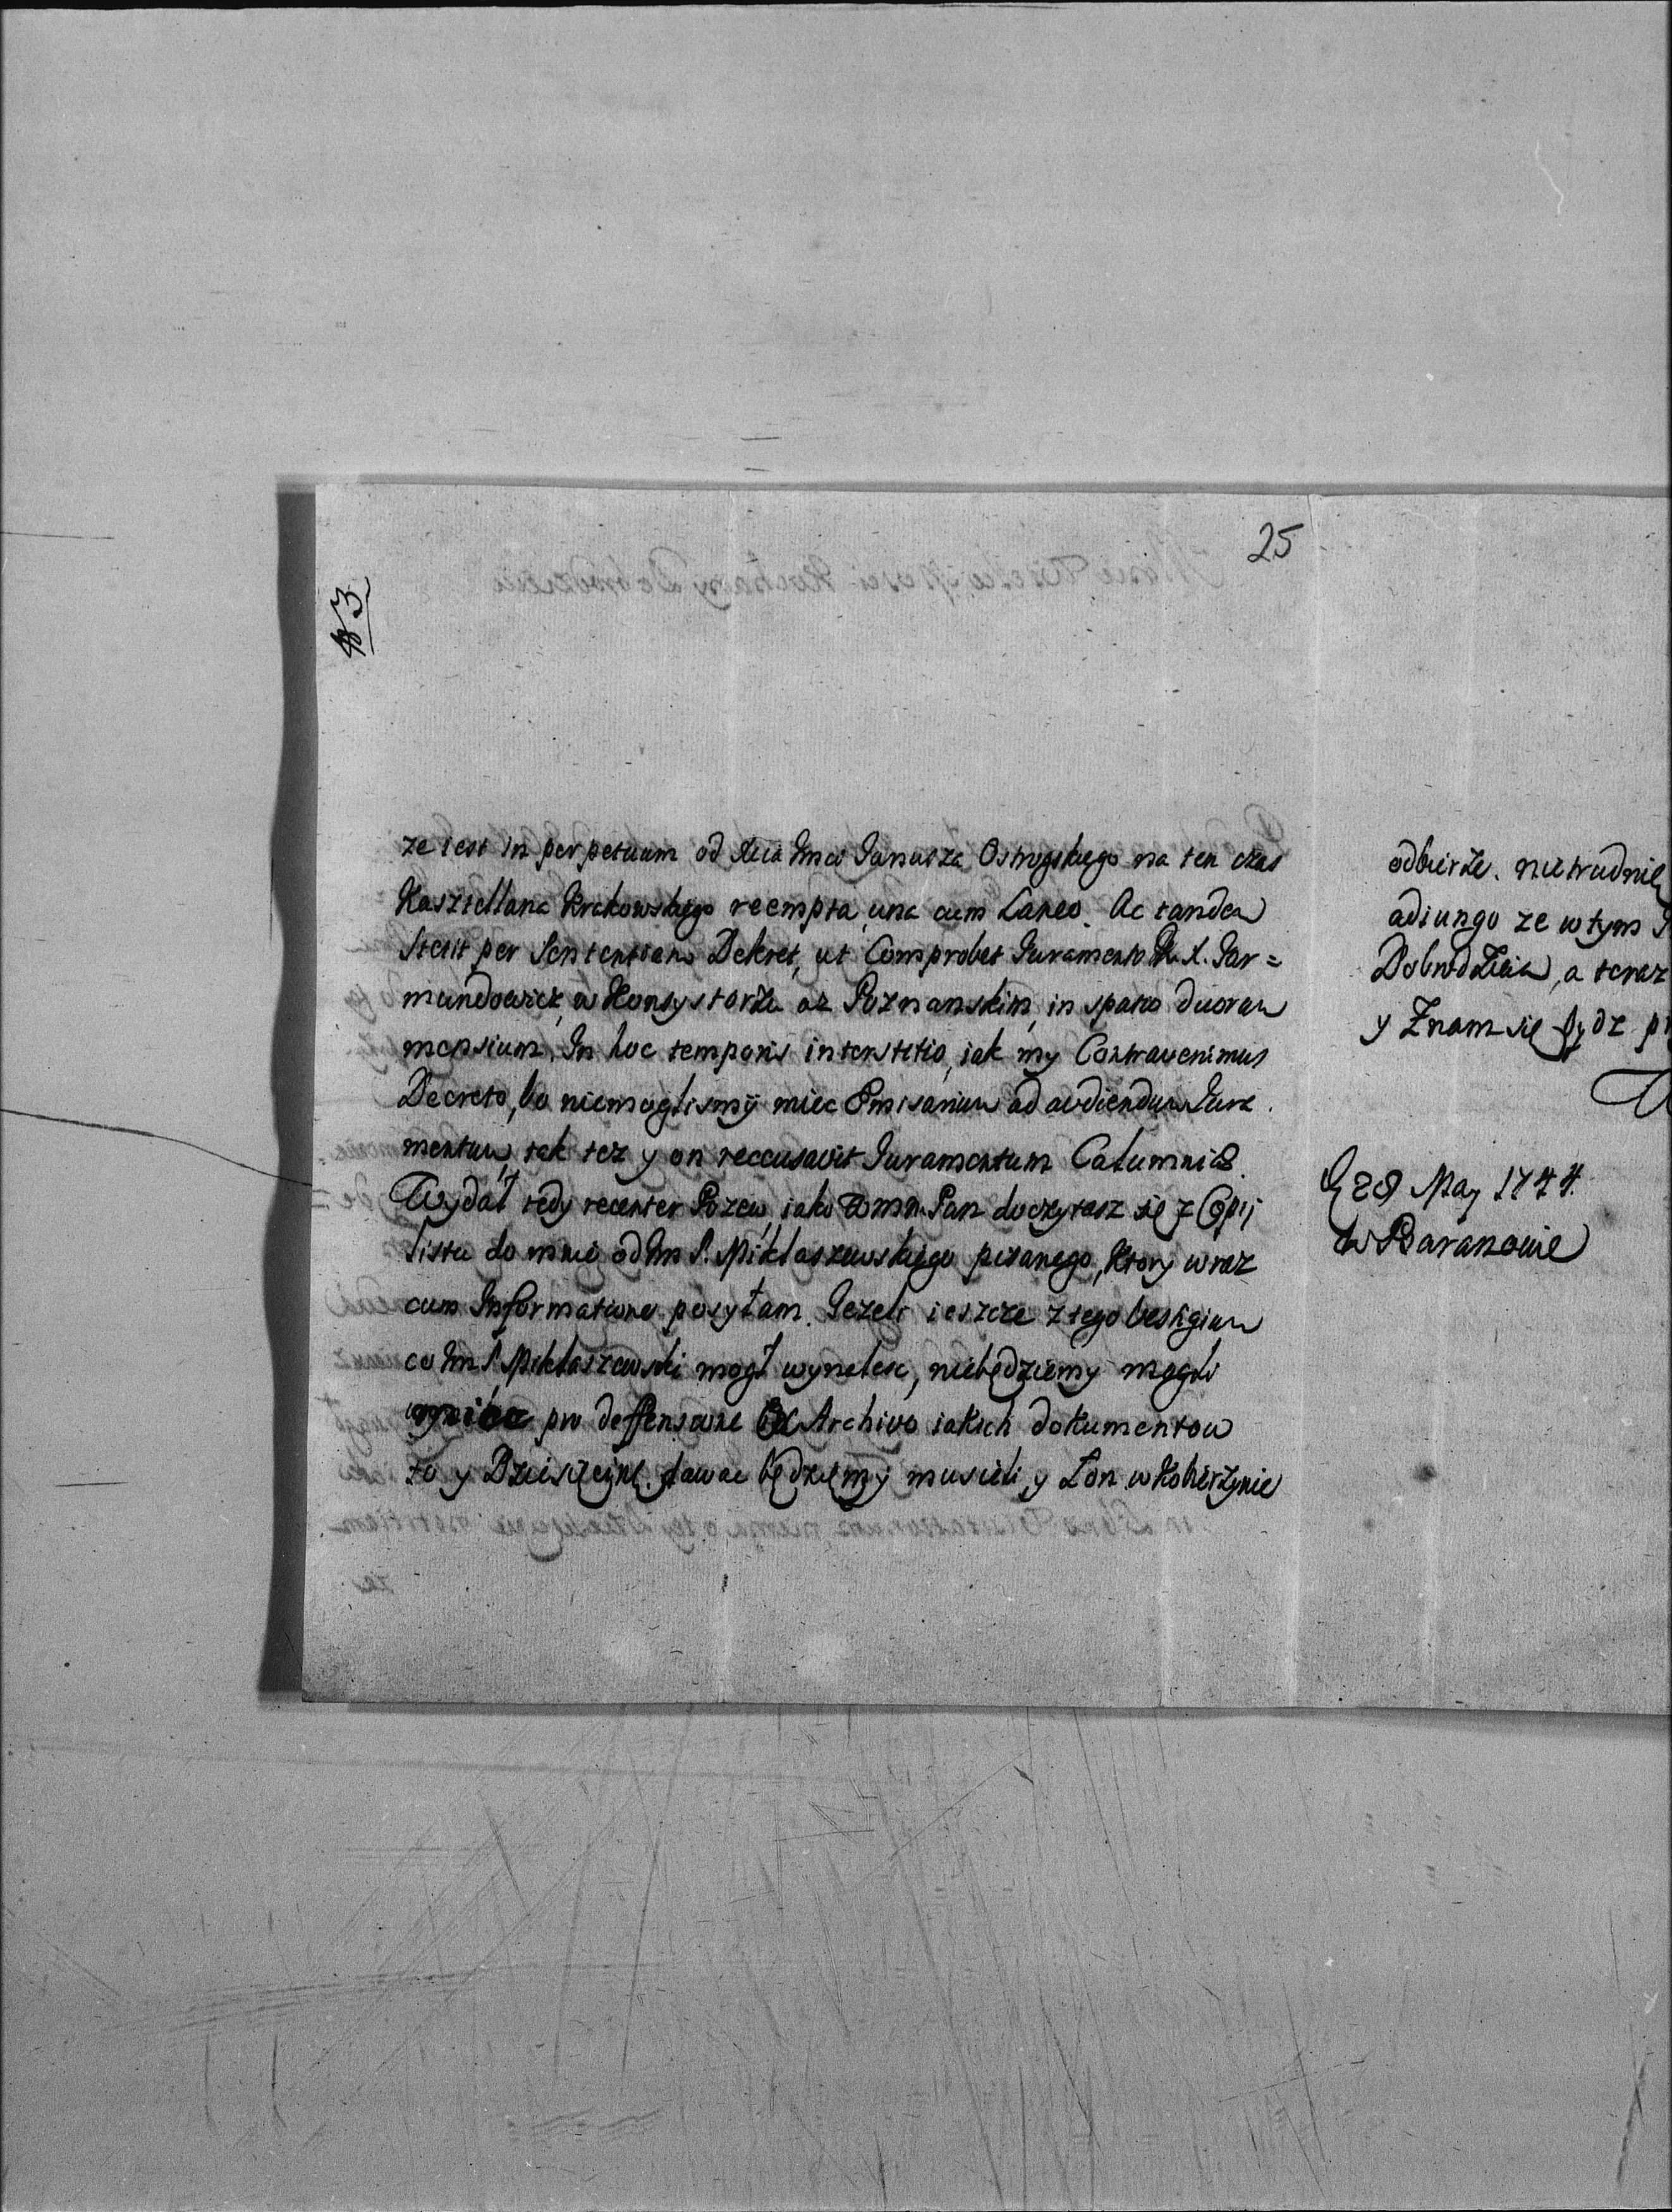 25
3
ze iest in perpetuum od Xcia Jmci Janusza Ostrogskiego na ten czas
Kasztellana Krakowskiego reempta, una cum Laneo. Ac tandem
Stetit per Sententiam Dekret, ut Comprobet Juramento X. Jar=
mundowicz, w Konsystorzu az Poznanskim, in spatio duorum
mensium, In hoc temporis interstitio, iak my Contravenimus
Decreto, bo niemoglismy miec Emisarium ad audiendum Jura
mentum, tak tez y on reccusavit Juramentum Calumniæ.
Wydáł tedy recenter Pozew, iako Pan doczytasz się z Copij
listu do mnie od Jm P. Miklaszewskiego pisanego, ktory wraz
cum Informatione posyłam. Jezeli ieszcze z tego vestigium
co Jm P. Miklaszewski mogł wynalesc, niebędziemy mogli
pro deffensione Ex Archivo iakich dokumentow
to y Dziesięcinę dawac będziemy musieli, y Łan w Kobierzynie
odbierze. nietrudnię
adiungo ze w tym
Dobrodzieia, a teraz
y Znam się bydz
28 May 1744.
w Baranowie